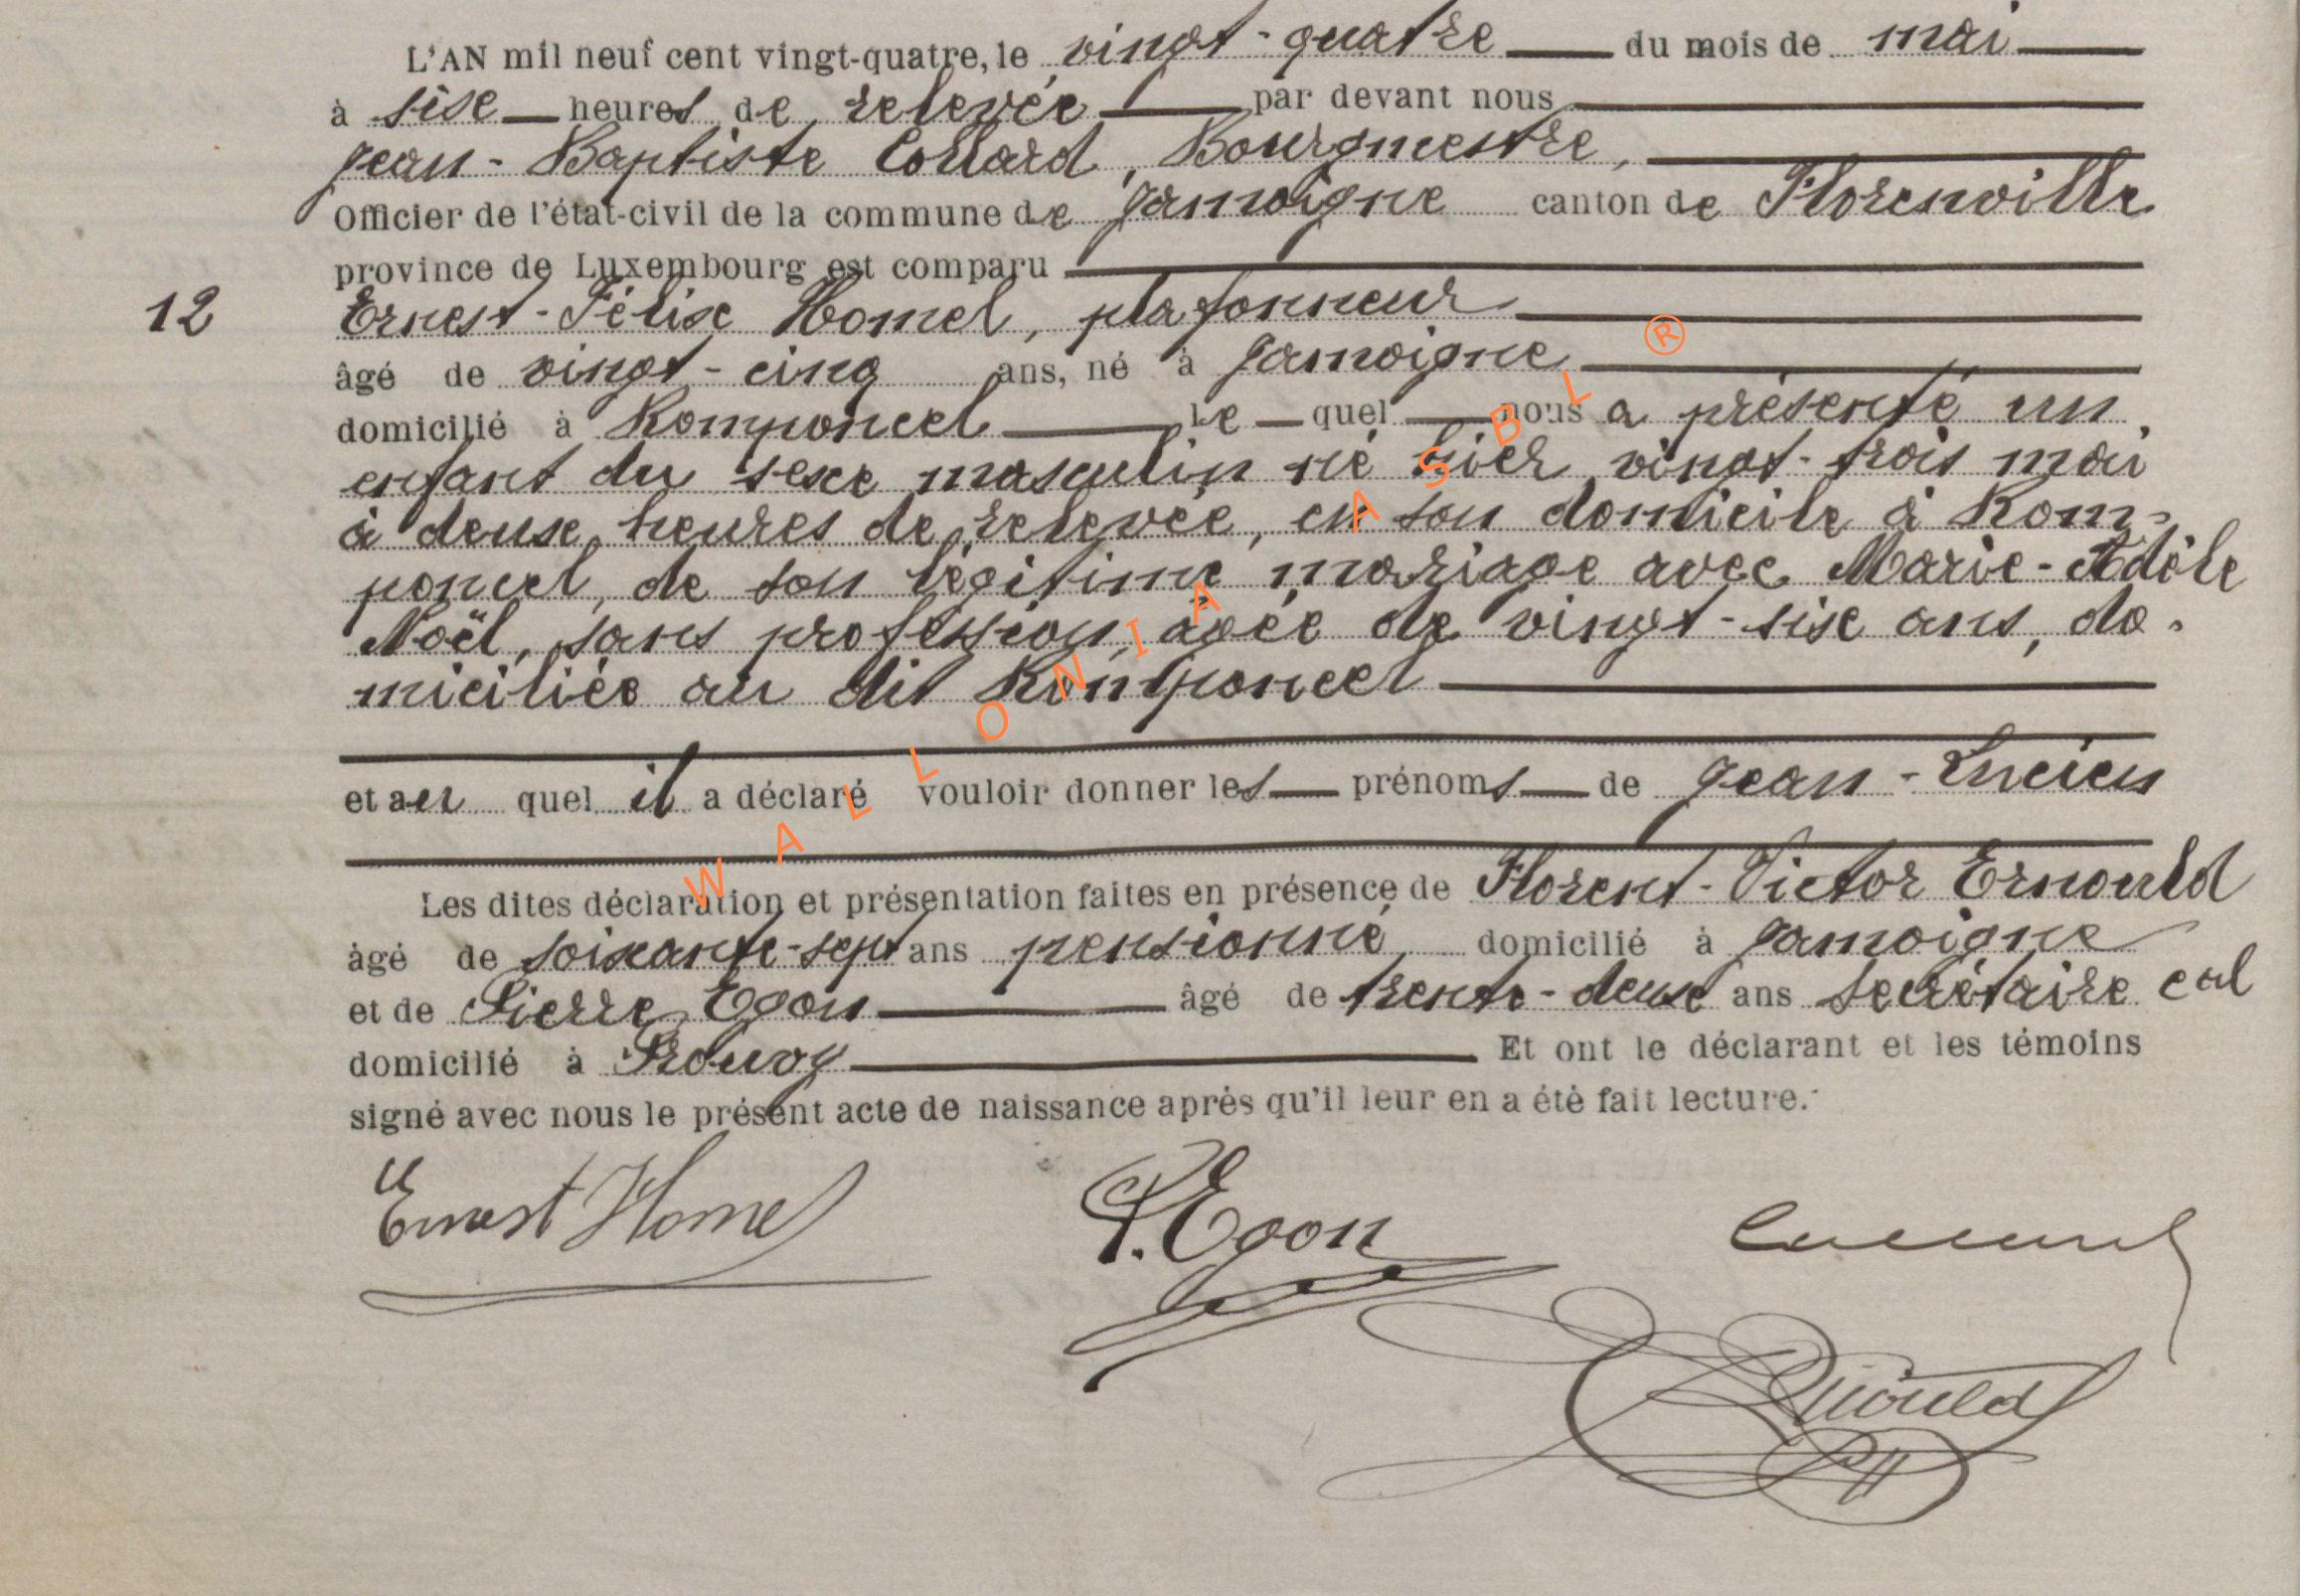 L'AN mil neuf cent vingt-quatre, le vingt-quatre du mois de mai
à sixe heures de relevée par devant nous
Jean-Baptiste Collard, Bourgmestre,
Officier de l'état-civil de la commune de Jamoigne canton de Florenville
province de Luxembourg est comparu
12 Ernest-Félix Homel, plafonneur
âgé de vingt-cinq ans, né à Jamoigne
domicilié à Romponcel le quel nous a présenté un
enfant du sexe masculin né hier vingt-trois mai
à deux heures de relevée, en son domicile à Rom-
poncel, de son légitime mariage avec Marie-Adèle
Noël, sans profession, agée de vingt-six ans, do-
miciliée au dit Romponcel
et au quel il a déclaré vouloir donner les prénoms de Jean-Lucien
Les dites déclaration et présentation faites en présence de Florent-Victor Ernould
âgé de soixante-sept ans pensionné domicilié à Jamoigne
et de Pierre Egon âgé de trente-deux ans secrétaire cal
domicilié à Prouvy Et ont le déclarant et les témoins
signé avec nous le présent acte de naissance après qu'il leur en a été fait lecture.
Ernest Homel P. Egon Collard
Ernould
WALLONIA ASBL ®